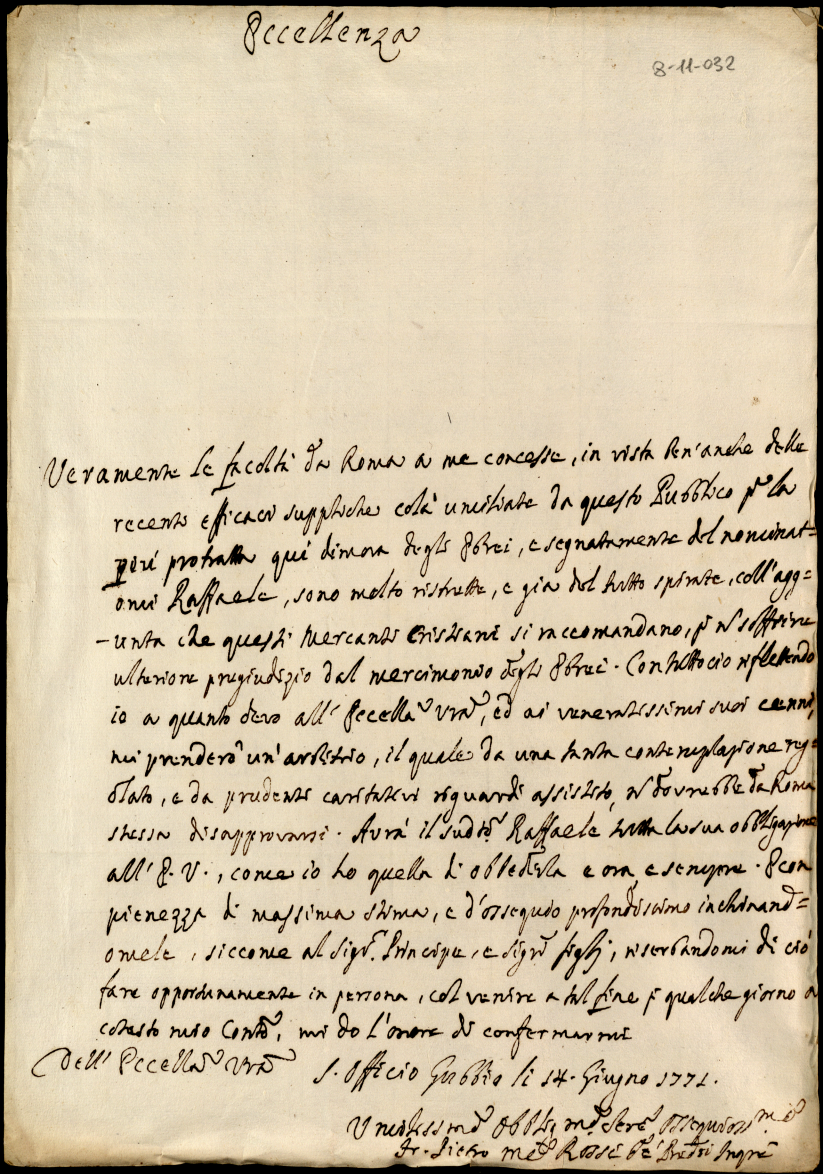 Eccellenza
8-11-032
Veramente le facoltà da Roma a me concesse, in vista ben'anche delle
recenti efficaci suppliche colà umiliate da questo Pubblico p la
più protratta qui dimora degli Ebrei, e segnatamente del nominat=
omi Raffaele, sono molto ristrette, e già del tutto spirate, coll'agg=
-iunta che questi Mercanti Cristiani si raccomandano, p nõ soffrire
ulteriore pregiudizio dal mercimonio degli Ebrei. Contuttociò riflettendo
io a quanto devo all' Eccellã Vrã, ed ai veneratissimi suoi cenni,
mi prenderò un'arbitrio, il quale da una tanta contemplazione reg=
olato, e da prudenti caritativi riguardi assistito, nõ dovrebbe da Roma
stessa disapprovarsi. Avrà il sudtõ Raffaele tutta la sua obbligazione
all' E. V., come io ho quella di obbedirla e ora, e sempre. E con
pienezza di massima stima, e d'ossequio profondissimo inchinand=
omele, siccome al Sigr. Principe, e Sigri figlj, riserbandomi di ciò
fare opportunamente in persona, col venire a tal fine p qualche giorno a
cotesto mio Conto, mi do l'onore di confermarmi
Dell' Eccellã Vrã S. Officio Gubbio li 14. Giugno 1771.
Umilissmo Obbligmo Serẽ Ossequiosmo
Fr. Pietro Rossi de' Predri Inqre